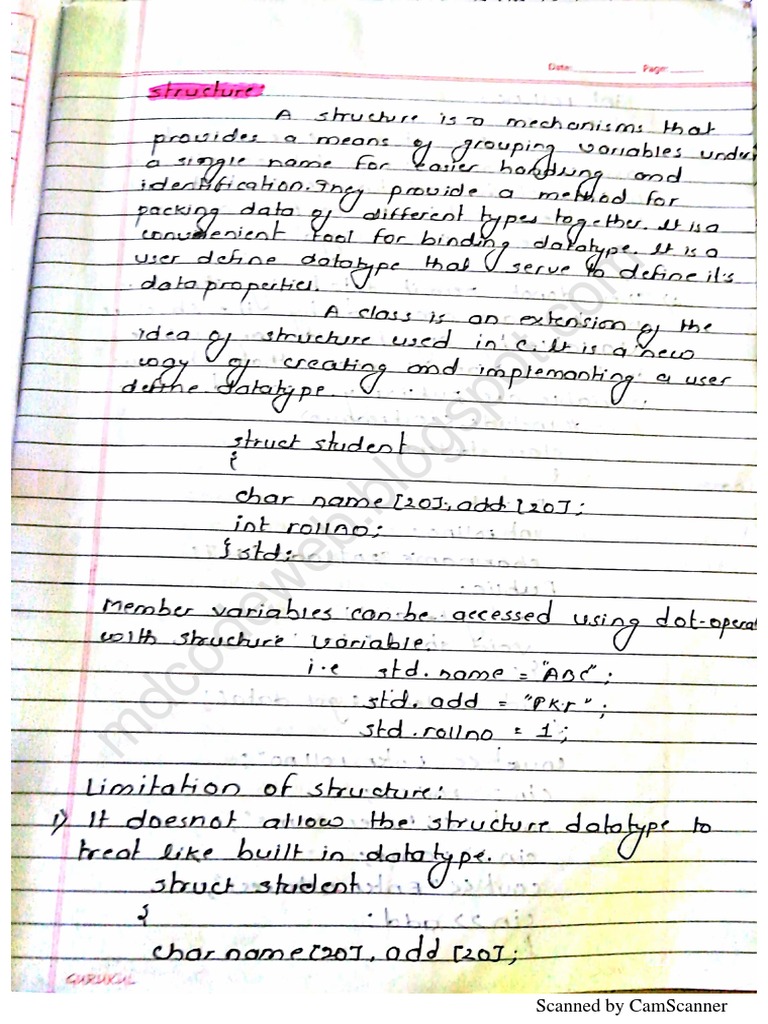 Date: Page:
structure:
A structure is a mechanisms that
provides a means of grouping variables under
a single name for easier handling and
identification. They provide a method for
packing data of different types together. It is a
convenient tool for binding datatype. It is a
user define datatype that serve to define it's
data properties.
A class is an extension of the
idea of structure used in c. It is a new
way of creating and implemanting a user
define datatype.
struct student
{
char name [20], add [20];
int rollno;
} std;
Member variables can be accessed using dot-operat
with structure variable.
i.e std.name = "ABC";
std.add = "PKr";
std.rollno = 1;
Limitation of structure:
1) It doesnot allow the structure datatype to
treat like built in datatype.
struct student
{
char name [20], add [20];
GURUKUL
mdcodeweb.blogspot.com
Scanned by CamScanner